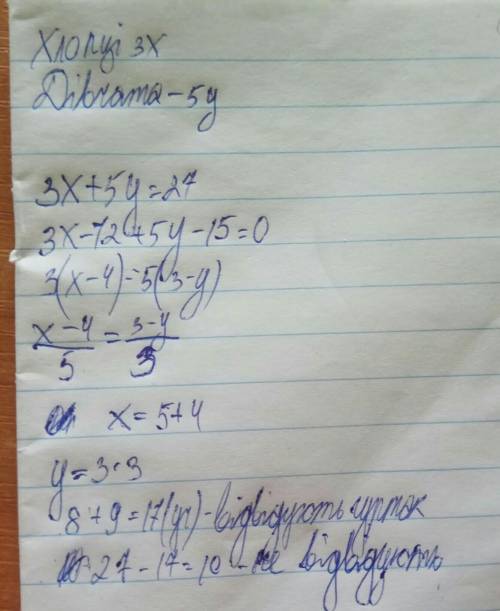 Хлопці 3х
Дівчата - 5у
3х+5у=27
3х-12+5у-15=0
3(х-4)=5(3-у)
х-4/5 = 3-у/3
х=5+4
у=3·3
8+9=17(уч)-відвідують гурток
27-17=10-не відвідують